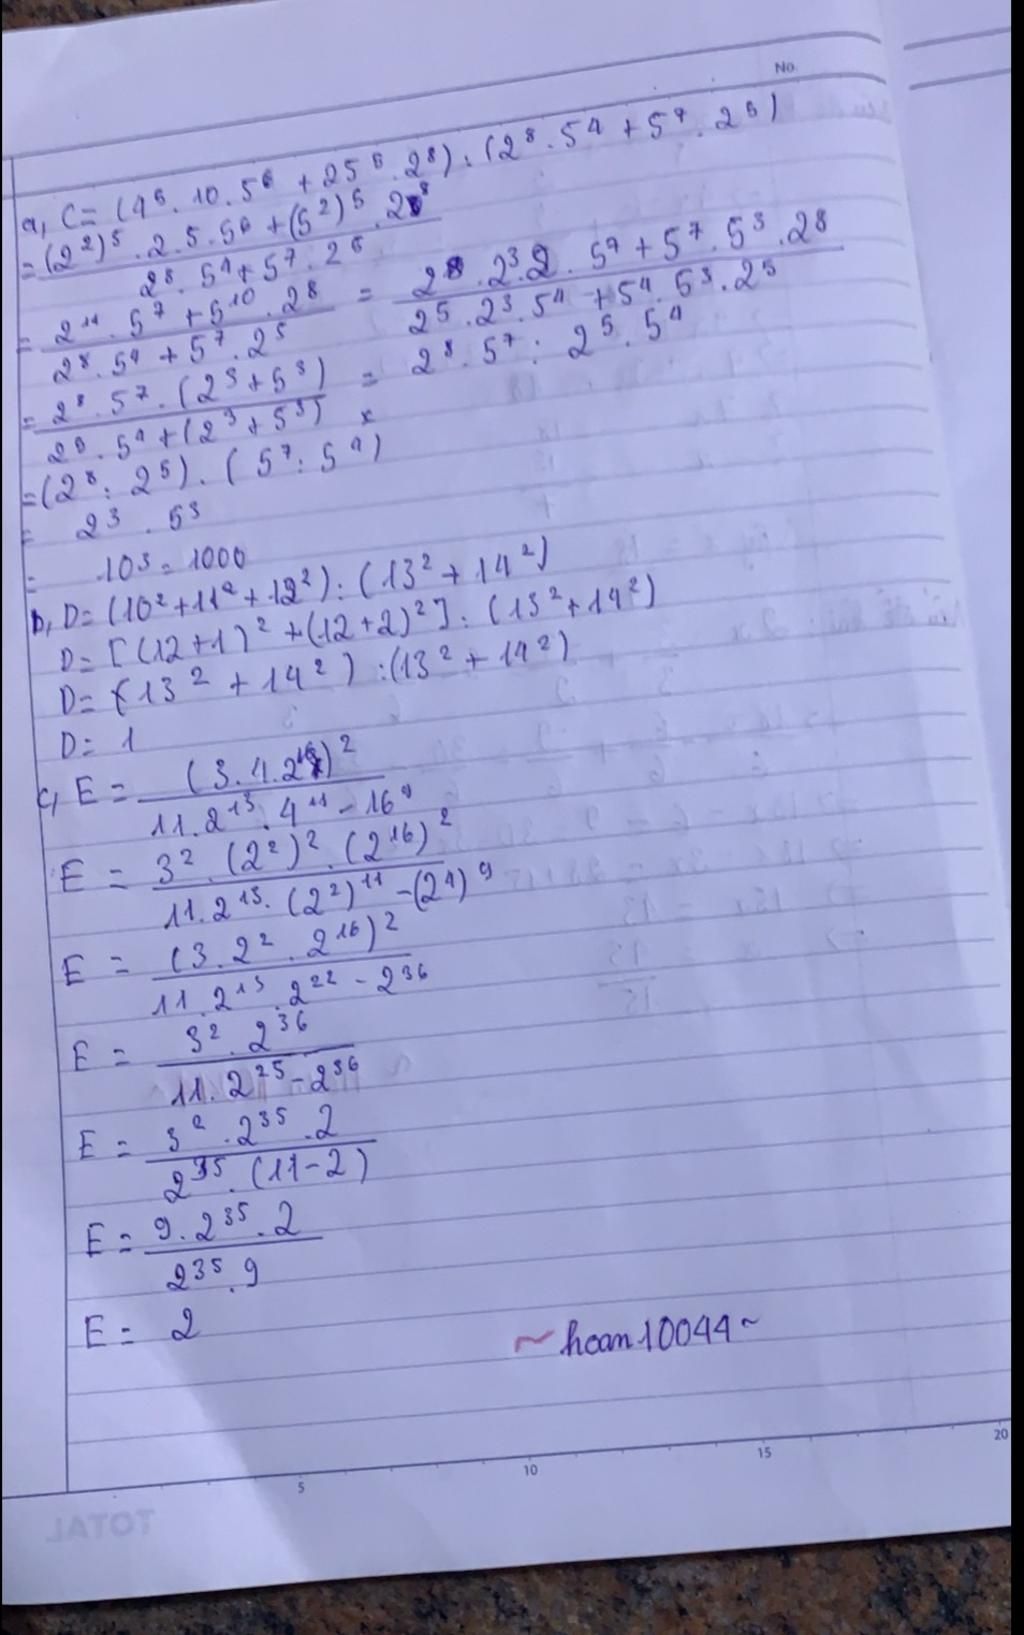 No.
a, C = (4⁵. 10. 5⁶ + 25⁵. 2⁸) : (2⁸. 5⁴ + 5⁷. 2⁵)
= (2²)⁵. 2. 5. 5⁶ + (5²)⁵. 2⁸ / 2⁸. 5⁴ + 5⁷. 2⁵
= 2¹¹. 5⁷ + 5¹⁰. 2⁸ / 2⁸. 5⁴ + 5⁷. 2⁵ = 2⁸. 2³. 5⁷ + 5⁷. 5³. 2⁸ / 2⁵. 2³. 5⁴ + 5⁴. 5³. 2⁵
= 2⁸. 5⁷. (2³ + 5³) / 2⁵. 5⁴ + (2³ + 5³) = 2⁸. 5⁷ : 2⁵. 5⁴
= (2⁸ : 2⁵). (5⁷ : 5⁴)
= 2³. 5³
= 10³ = 1000
b, D = (10² + 11² + 12²) : (13² + 14²)
D = [(12+1)² + (12+2)²] : (13² + 14²)
D = (13² + 14²) : (13² + 14²)
D = 1
c, E = (3. 4. 2¹⁶)² / 11. 2¹³. 4¹¹ - 16⁹
E = 3². (2²)². (2¹⁶)² / 11. 2¹³. (2²)¹¹ - (2⁴)⁹
E = (3. 2². 2¹⁶)² / 11. 2¹³. 2²² - 2³⁶
E = 3². 2³⁶ / 11. 2²⁵ - 2³⁶
E = 3². 2³⁵. 2 / 2³⁵. (11 - 2)
E = 9. 2³⁵. 2 / 2³⁵. 9
E = 2
~ hoan10044 ~
5 10 15 20
TOTAL